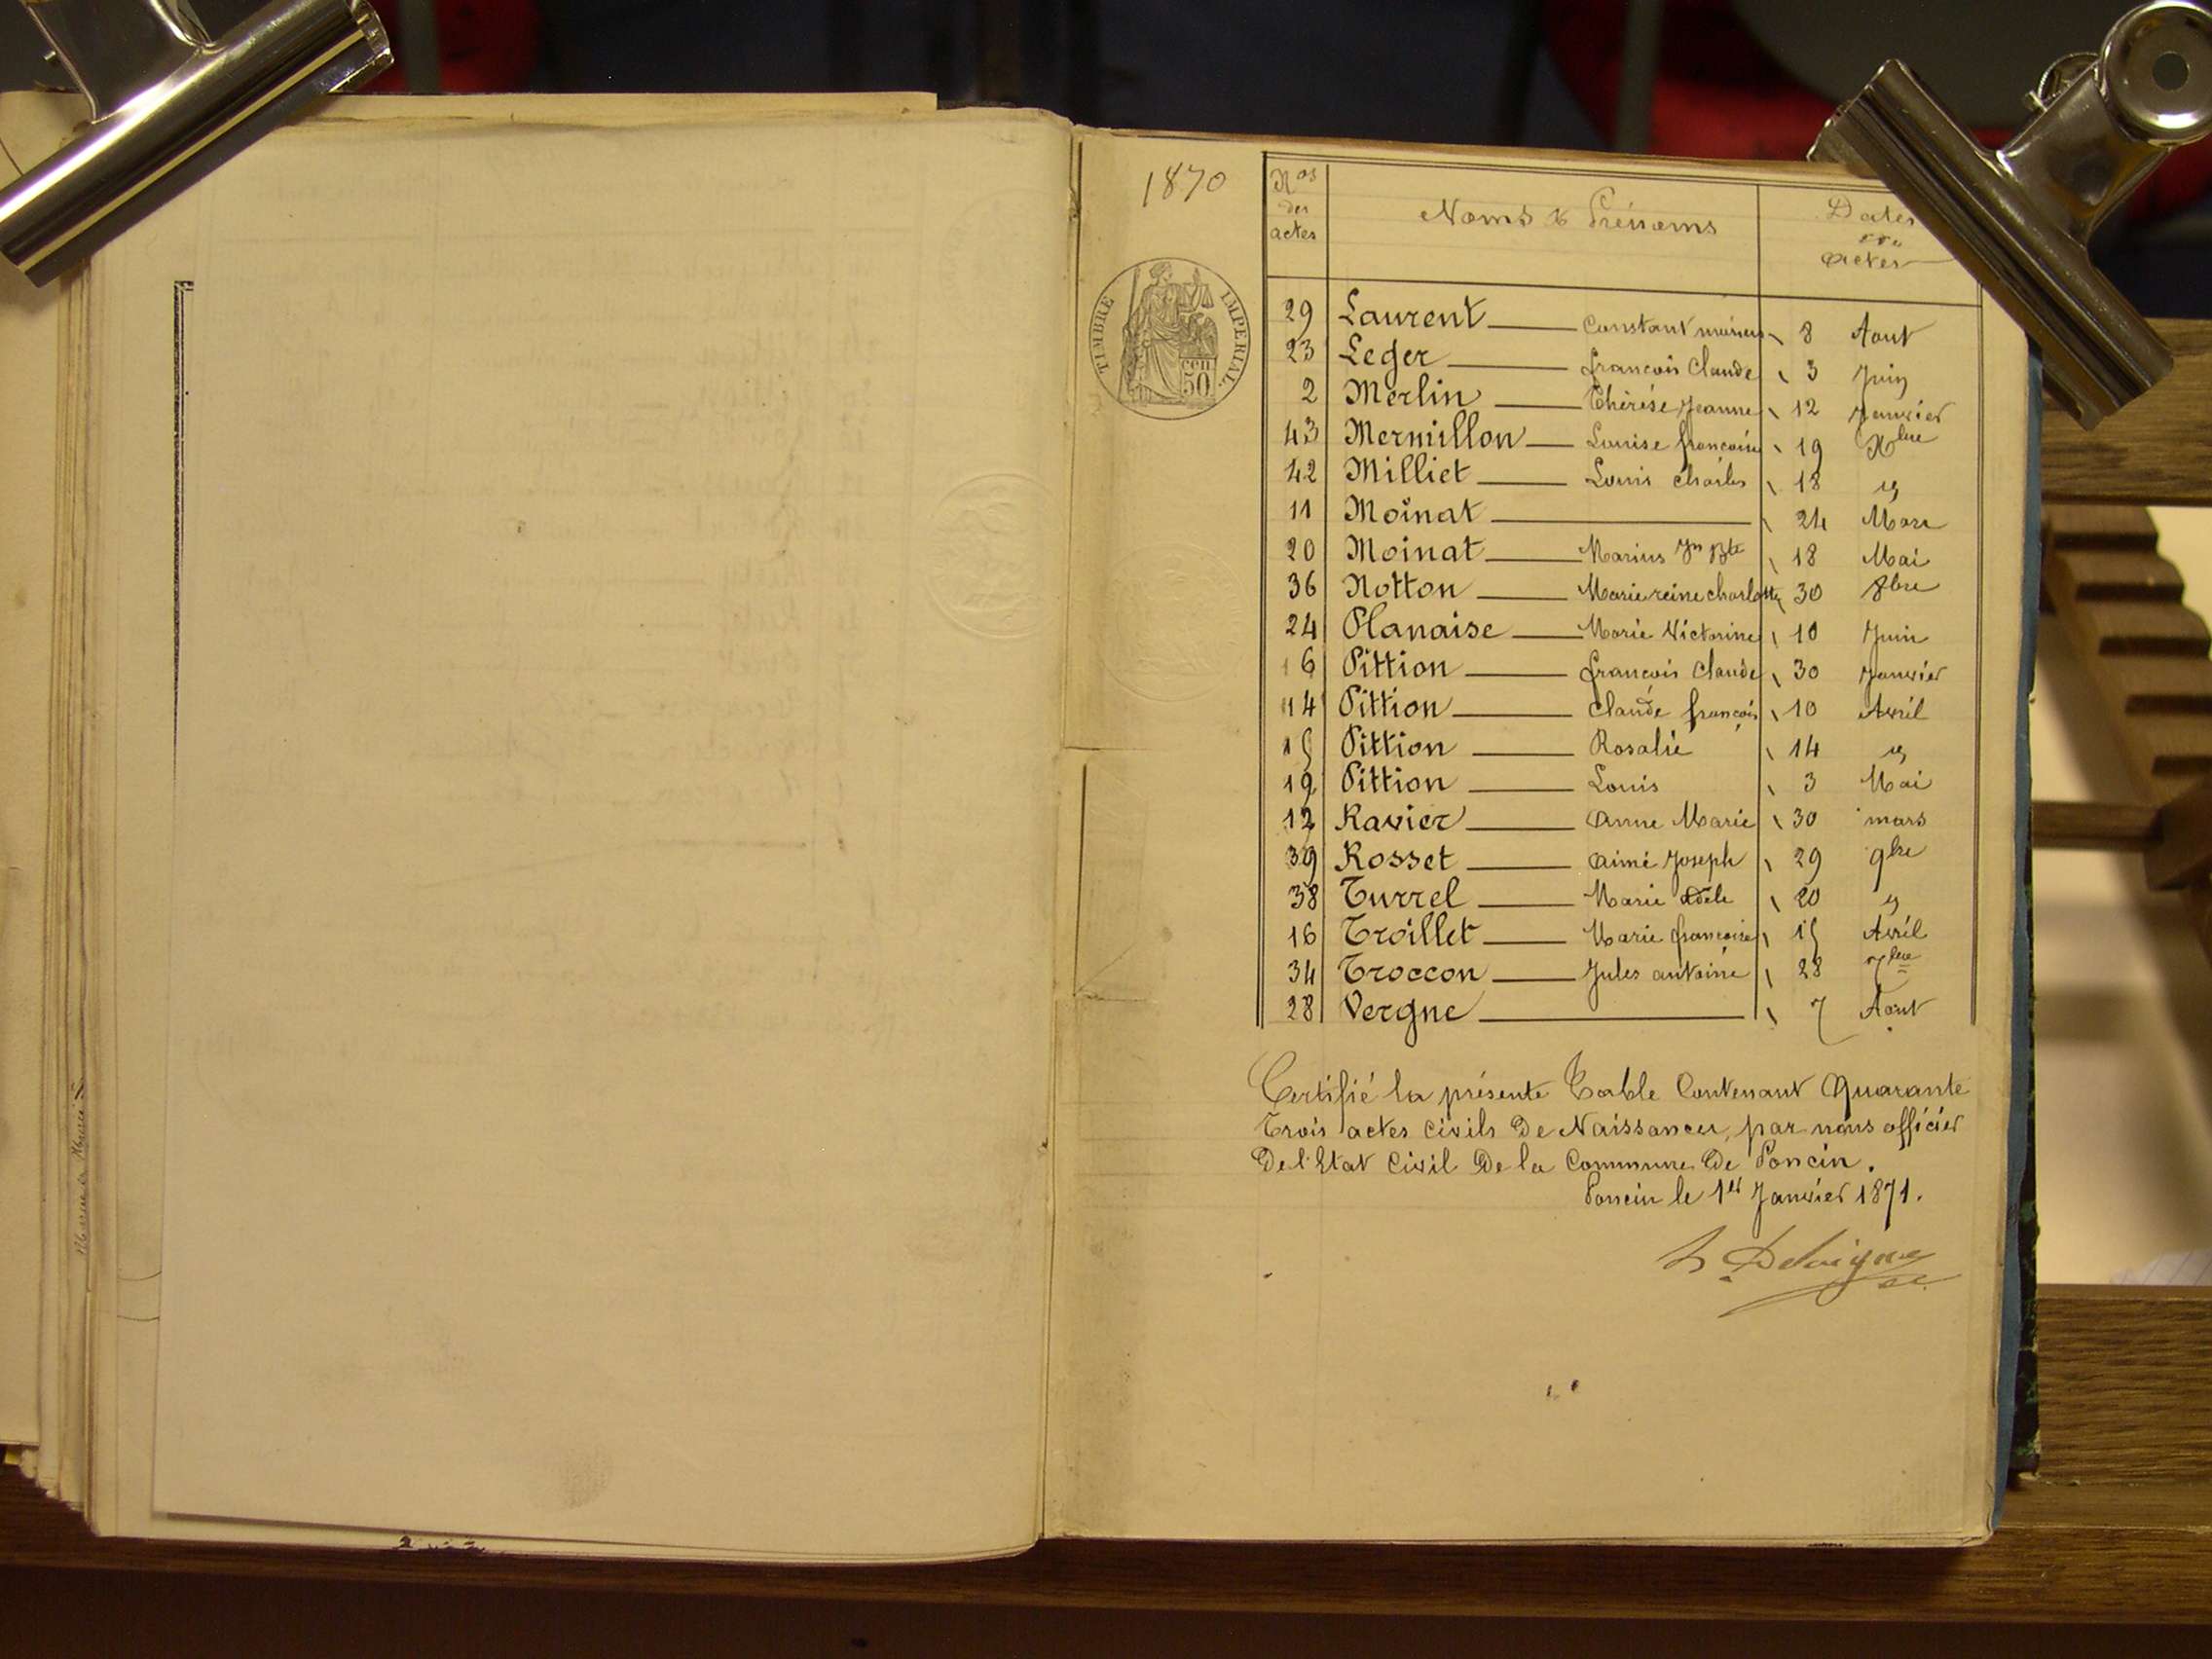 1870
TIMBRE IMPERIAL
cen 50
Nos des actes
Noms & Prénoms
Dates des actes
29 Laurent Constant marius 8 Aout
23 Leger françois Claude 3 Juin
2 Merlin Thérèse Jeanne 12 Janvier
43 Mermillon Louise françoise 19 Xbre
42 Milliet Louis Charles 18 id
11 Moinat 24 Mars
20 Moinat Marius Jn Bte 18 Mai
36 Notton Marie reine charlotte 30 8bre
24 Planaise Marie Victorine 10 Juin
6 Pittion françois Claude 30 Janvier
14 Pittion Claude françois 10 Avril
15 Pittion Rosalie 14 id
19 Pittion Louis 3 Mai
12 Ravier Anne Marie 30 mars
39 Rosset Aimé Joseph 29 9bre
38 Turrel Marie Adèle 20 id
16 Troillet Marie françoise 15 Avril
34 Troccon Jules antoine 28 7bre
28 Vergne 7 Aout
Certifié la présente Table Contenant Quarante
Trois actes civils De Naissances, par nous officier
De l'Etat Civil De la Commune De Poncin.
Poncin le 1er Janvier 1871.